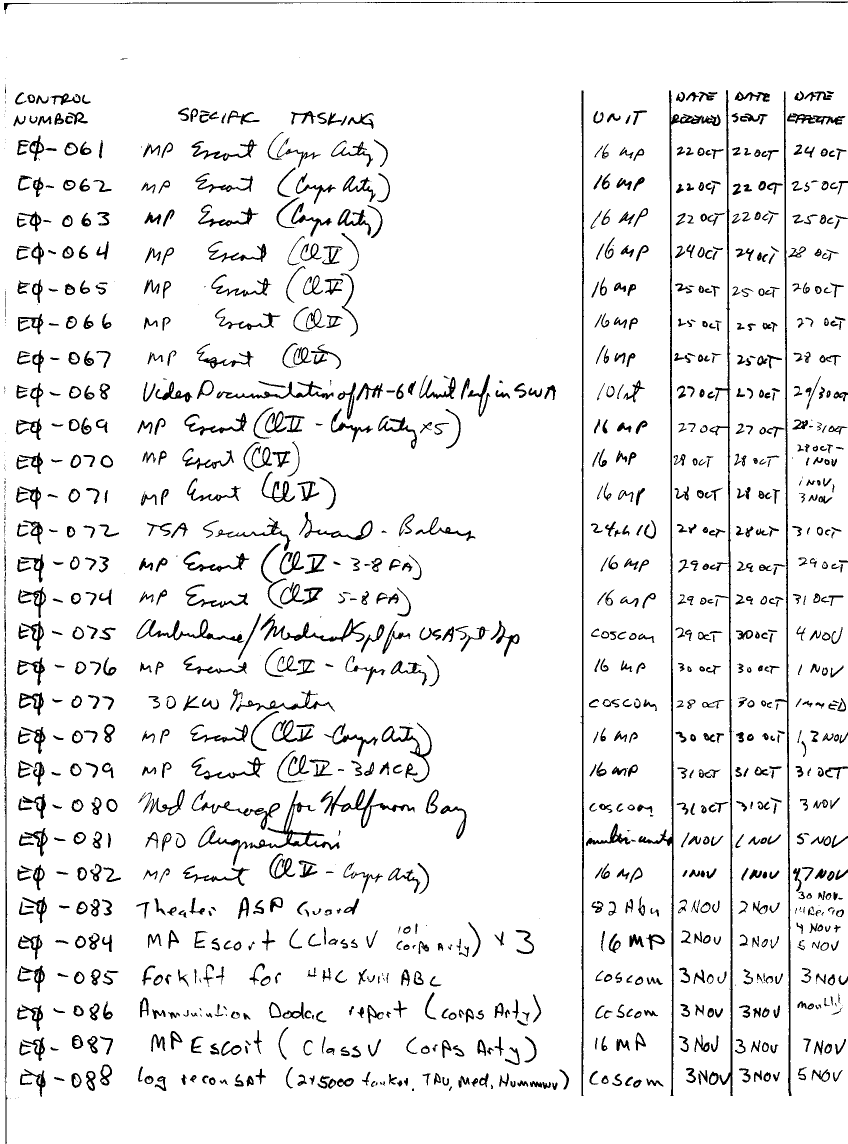 CONTROL NUMBER SPECIFIC TASKING UNIT DATE RECEIVED DATE SENT DATE EFFECTIVE
EØ-061 MP Escort (Corps Arty) 16 MP 22 OCT 22 OCT 24 OCT
EØ-062 MP Escort (Corps Arty) 16 MP 22 OCT 22 OCT 25 OCT
EØ-063 MP Escort (Corps Arty) 16 MP 22 OCT 22 OCT 25 OCT
EØ-064 MP Escort (Cl V) 16 MP 24 OCT 24 OCT 28 OCT
EØ-065 MP Escort (Cl V) 16 MP 25 OCT 25 OCT 26 OCT
EØ-066 MP Escort (Cl V) 16 MP 25 OCT 25 OCT 27 OCT
EØ-067 MP Escort (Cl V) 16 MP 25 OCT 25 OCT 28 OCT
EØ-068 Video Documentation of AH-64 Unit Perf in SWA 101st 27 OCT 27 OCT 29/30 OCT
EØ-069 MP Escort (Cl V - Corps Arty x5) 16 MP 27 OCT 27 OCT 28-31 OCT
EØ-070 MP Escort (Cl V) 16 MP 28 OCT 28 OCT 28 OCT - 1 NOV
EØ-071 MP Escort (Cl V) 16 MP 28 OCT 28 OCT 1 NOV, 3 NOV
EØ-072 TSA Security Guard - 24th ID 28 OCT 28 OCT 31 OCT
EØ-073 MP Escort (Cl V - 3-8 FA) 16 MP 29 OCT 29 OCT 29 OCT
EØ-074 MP Escort (Cl V 5-8 FA) 16 MP 29 OCT 29 OCT 31 OCT
EØ-075 Ambulance/Medical Spt for USA Spt Gp COSCOM 29 OCT 30 OCT 4 NOV
EØ-076 MP Escort (Cl V - Corps Arty) 16 MP 30 OCT 30 OCT 1 NOV
EØ-077 30 KW Generator COSCOM 28 OCT 30 OCT IMMED
EØ-078 MP Escort (Cl V - Corps Arty) 16 MP 30 OCT 30 OCT 1, 3 NOV
EØ-079 MP Escort (Cl V - 3d ACR) 16 MP 31 OCT 31 OCT 31 OCT
EØ-080 Med Coverage for Halfmoon Bay COSCOM 31 OCT 31 OCT 3 NOV
EØ-081 APO Augmentation multi-units 1 NOV 1 NOV 5 NOV
EØ-082 MP Escort (Cl V - Corps Arty) 16 MP 1 NOV 1 NOV 7 NOV
EØ-083 Theater ASP Guard 82 Abn 2 NOV 2 NOV 30 NOV-
EØ-084 MP Escort (Class V 101 Corps Arty) x 3 16 MP 2 NOV 2 NOV 4 NOV + 5 NOV
EØ-085 Forklift for HHC XVIII ABC COSCOM 3 NOV 3 NOV 3 NOV
EØ-086 Ammunintion Dodac report (Corps Arty) COSCOM 3 NOV 3 NOV monthly
EØ-087 MP Escort (Class V Corps Arty) 16 MP 3 NOV 3 NOV 7 NOV
EØ-088 log recon spt (2x5000 tanker, TAU, Med, Hummwv) COSCOM 3 NOV 3 NOV 5 NOV